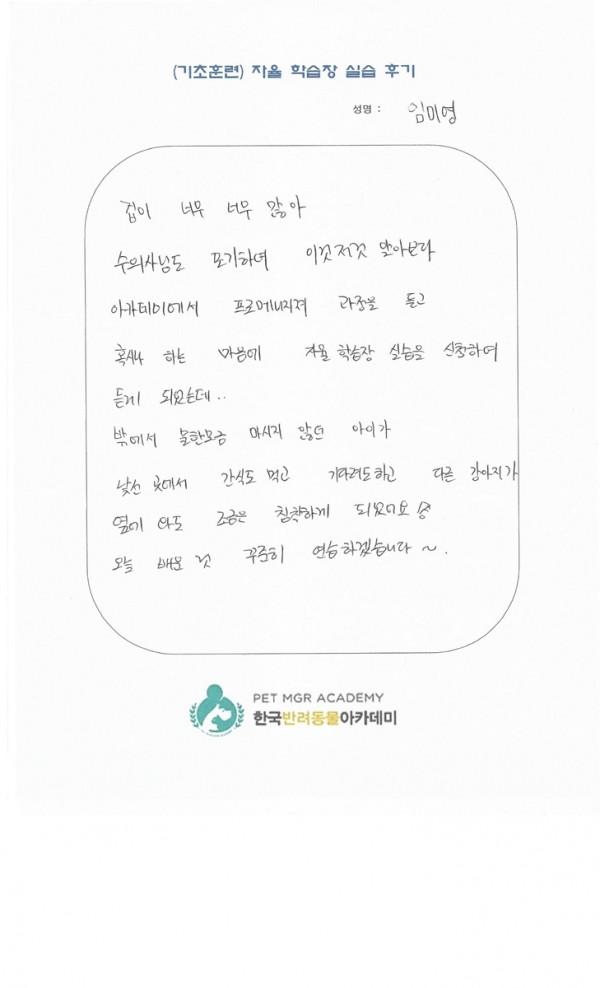 (기초훈련) 자율 학습장 실습 후기
성명 : 임미영
겁이 너무 너무 많아
수의사님도 포기하며 이것저것 알아보다
아카데미에서 프로매니져 과정을 듣고
혹시나 하는 마음에 자율 학습장 실습을 신청하여
듣게 되었는데..
밖에서 물한모금 마시지 않던 아이가
낯선 곳에서 간식도 먹고 기다려도하고 다른 강아지가
옆에 와도 조금은 침착하게 되었어요
오늘 배운 것 꾸준히 연습하겠습니다 ~.
PET MGR ACADEMY
한국반려동물아카데미